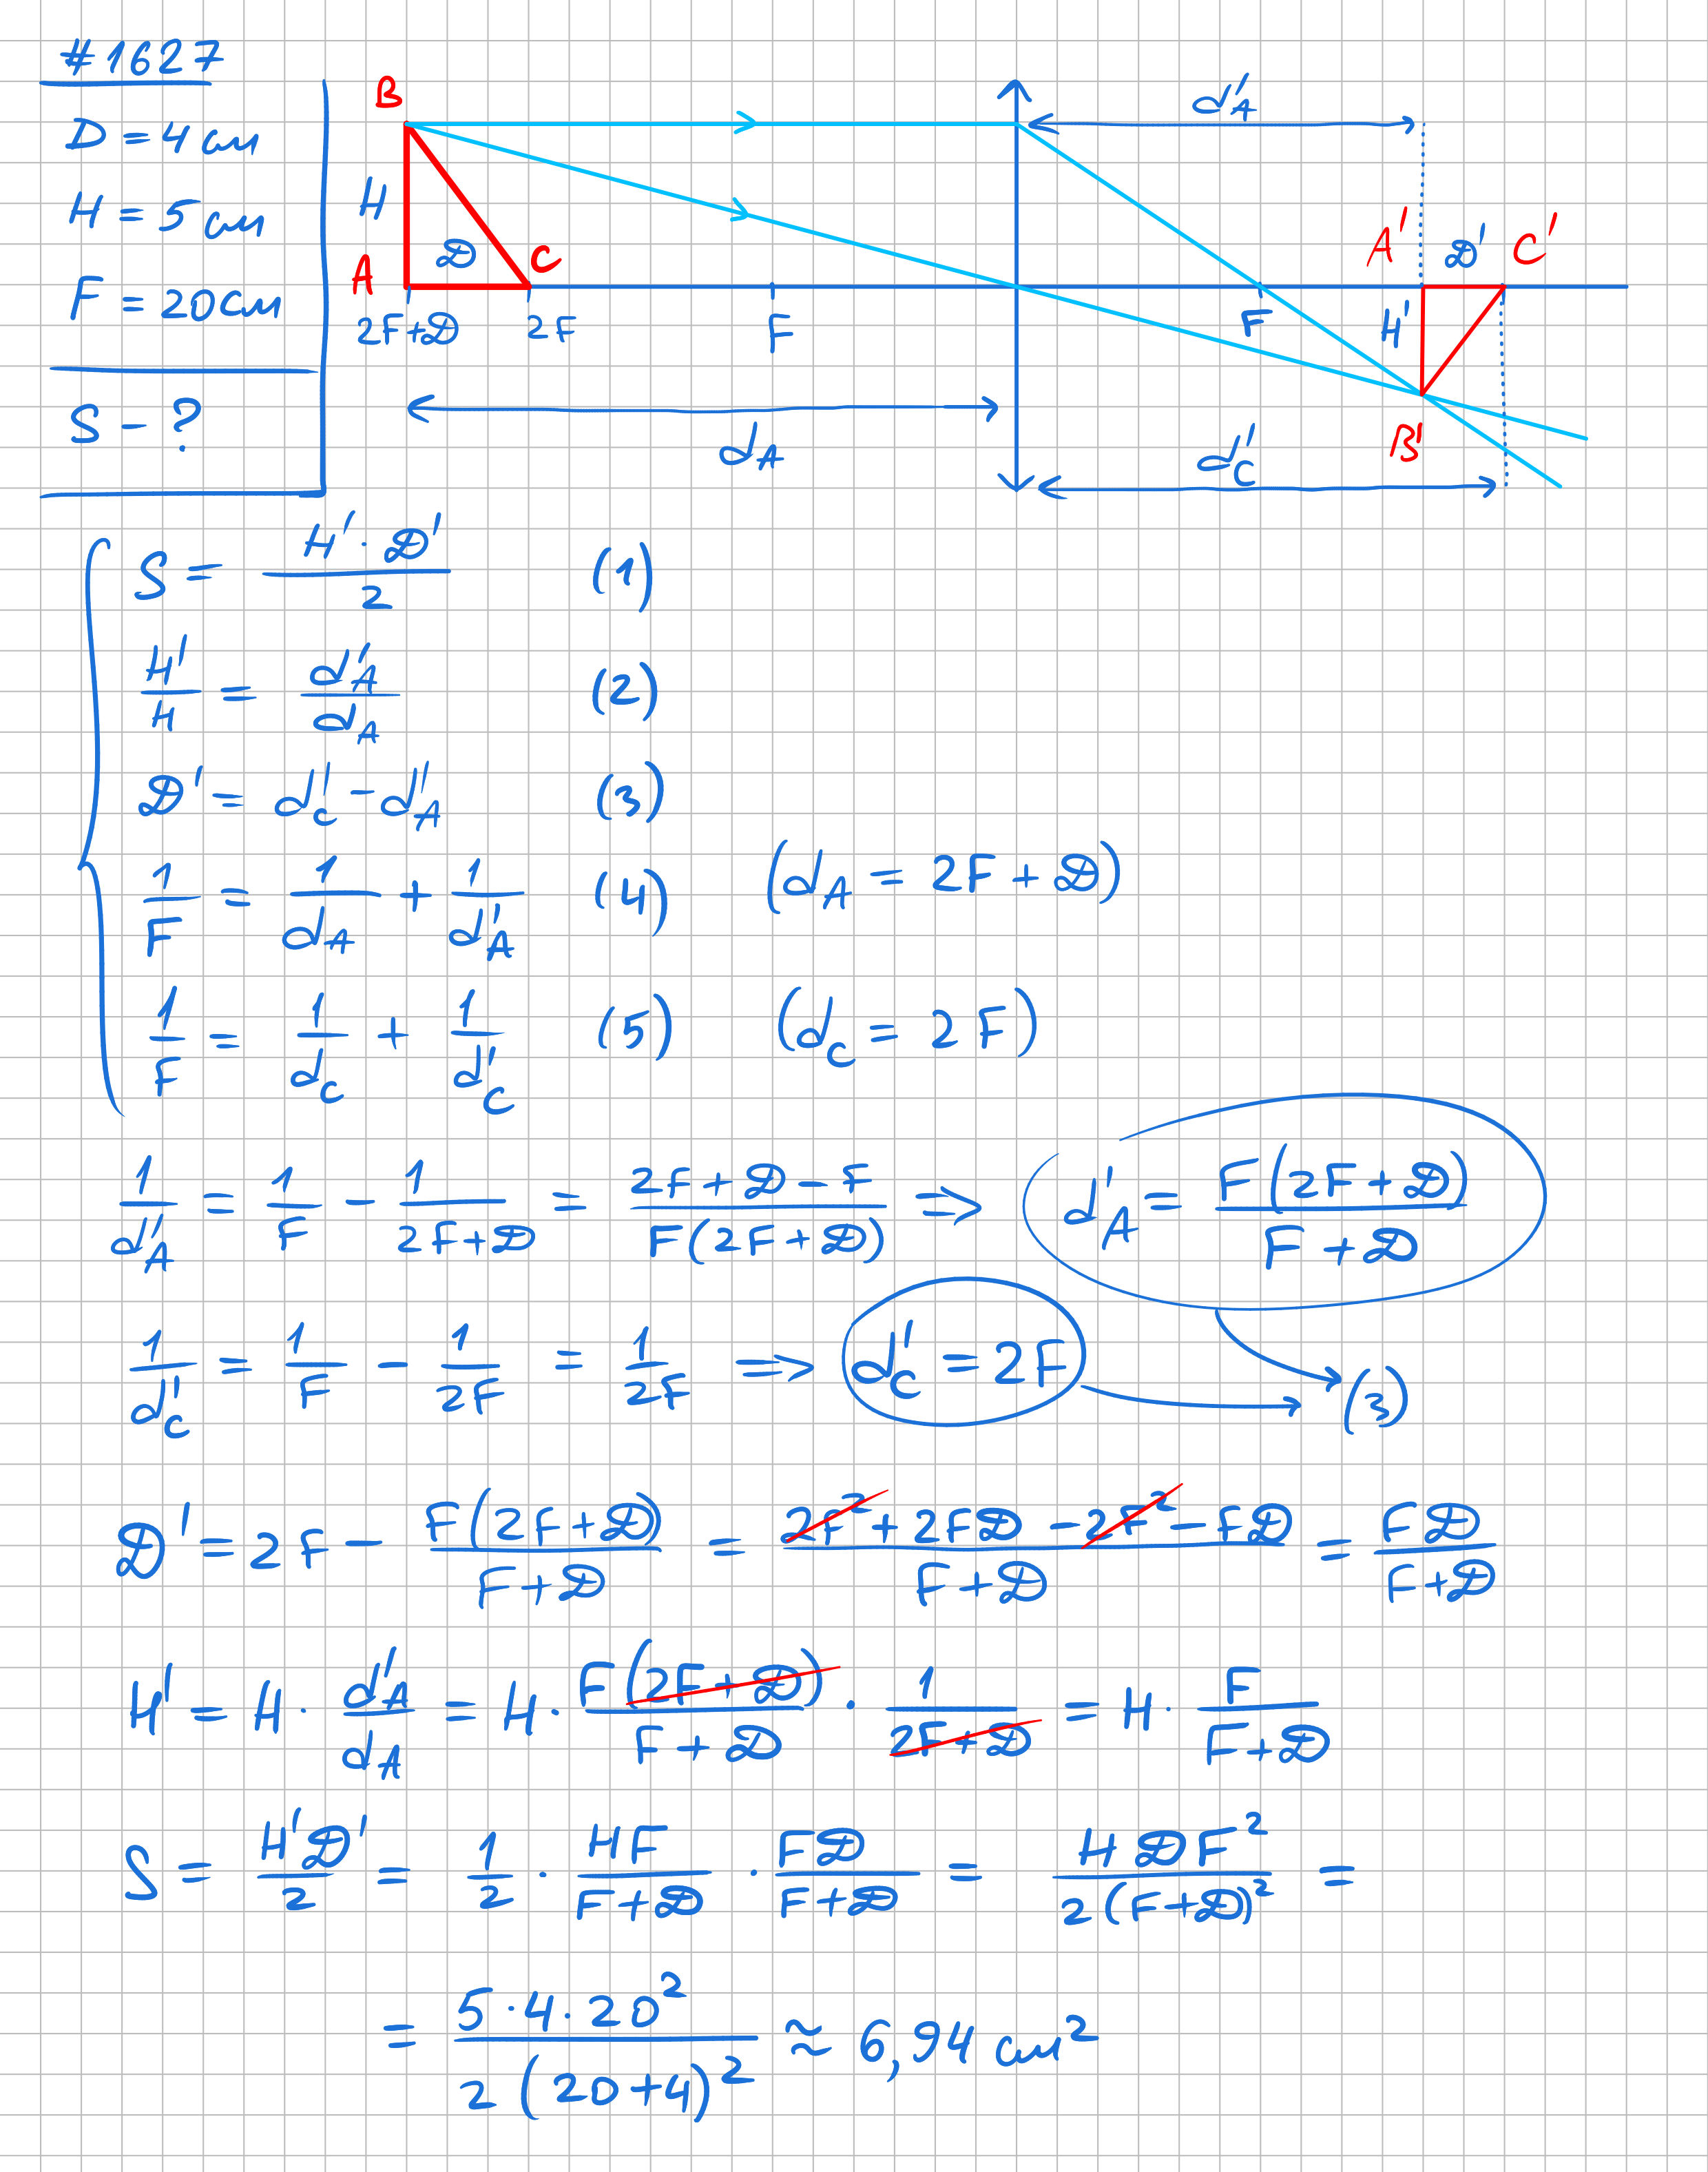 #1627
D = 4 см
H = 5 см
F = 20 см
S - ?
B
H
A
D
C
2F+D
2F
F
d_A
d'_A
F
A'
D'
C'
H'
B'
d'_C
S = (H' · D')/2 (1)
H'/H = d'_A/d_A (2)
D' = d'_C - d'_A (3)
1/F = 1/d_A + 1/d'_A (4) (d_A = 2F + D)
1/F = 1/d_C + 1/d'_C (5) (d_C = 2F)
1/d'_A = 1/F - 1/(2F+D) = (2F + D - F)/(F(2F+D)) ⇒ d'_A = F(2F+D)/(F+D)
1/d'_C = 1/F - 1/2F = 1/2F ⇒ d'_C = 2F → (3)
D' = 2F - F(2F+D)/(F+D) = (2F² + 2FD - 2F² - FD)/(F+D) = FD/(F+D)
H' = H · d'_A/d_A = H · F(2F+D)/(F+D) · 1/(2F+D) = H · F/(F+D)
S = H'D'/2 = 1/2 · HF/(F+D) · FD/(F+D) = HDF²/(2(F+D)²) =
= (5·4·20²)/(2(20+4)²) ≈ 6,94 см²